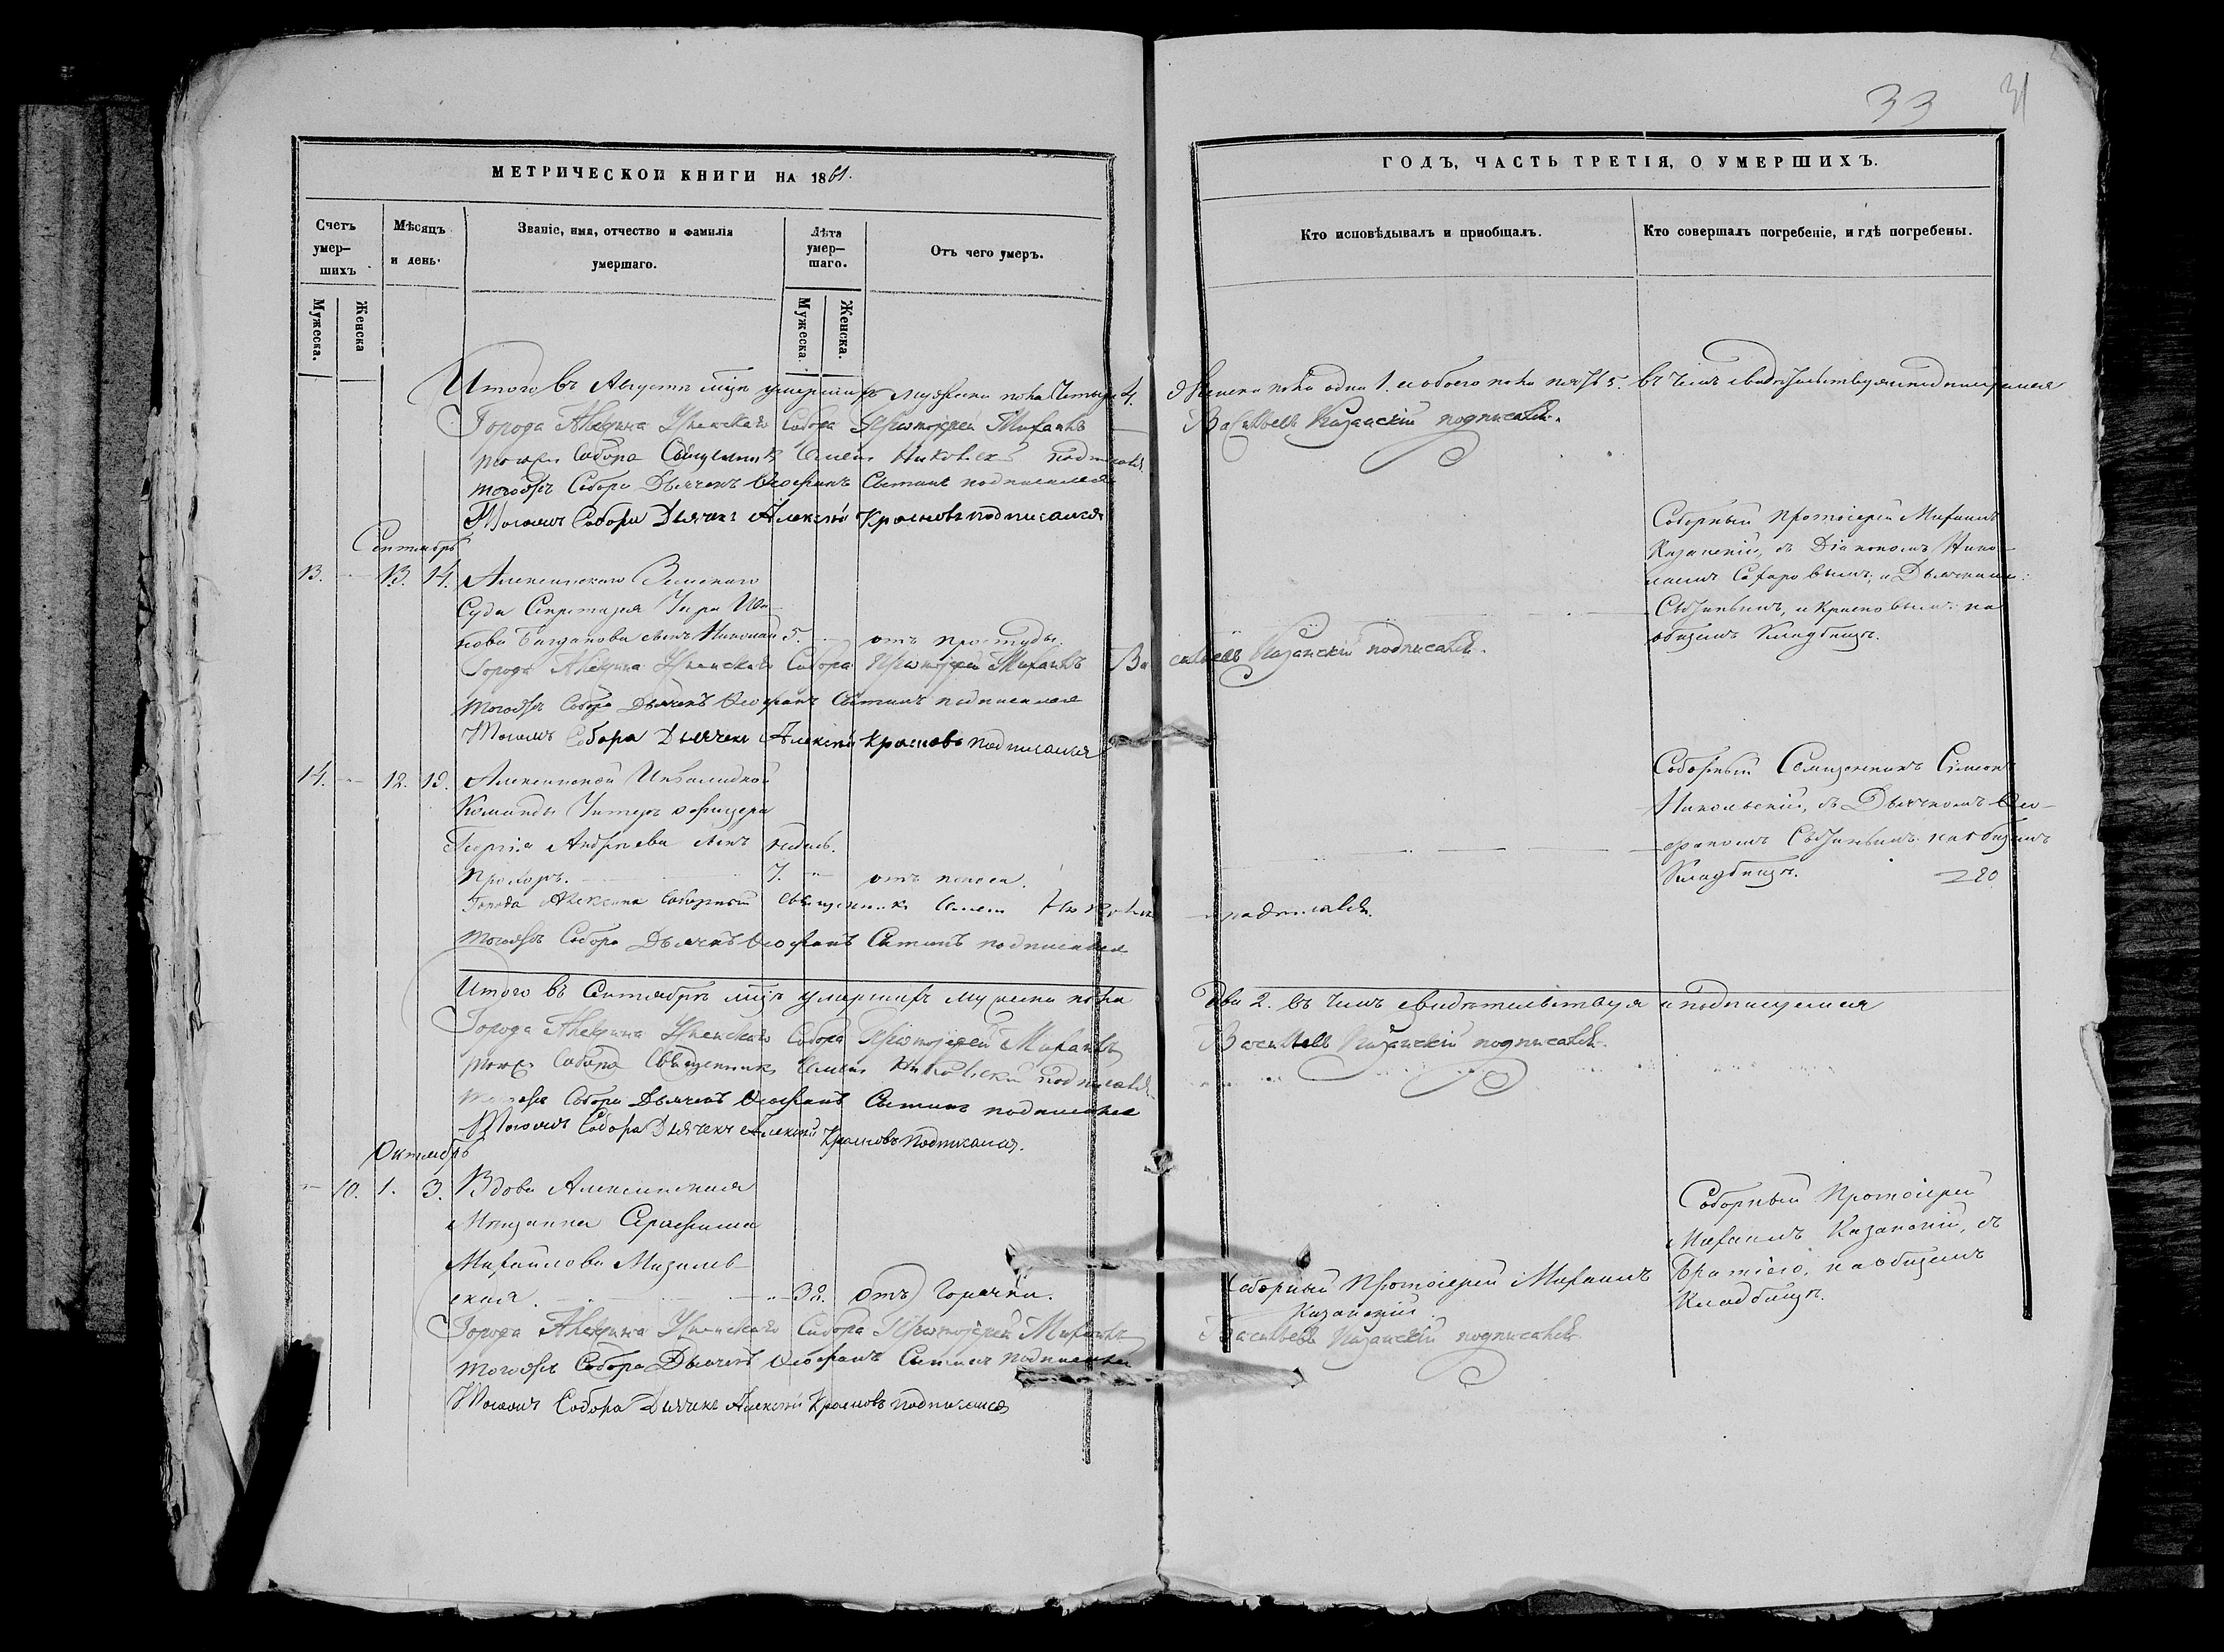 33
31
МЕТРИЧЕСКОЙ КНИГИ НА 1861.
ГОДЪ, ЧАСТЬ ТРЕТІЯ, О УМЕРШИХЪ.
Счетъ умер–шихъ
Мѣсяцъ и день.
Званіе, имя, отчество и фамилія умершаго.
Лѣта умер–шаго.
Отъ чего умеръ.
Кто исповѣдывалъ и приобщалъ.
Кто совершалъ погребеніе, и гдѣ погребены.
Мужеска.
Женска
Мужеска.
Женска.
Итого въ Августѣ мцѣ умершихъ мужеска пола четыре 4. Женска пола одна 1. и обоего пола пять 5. въ чемъ свидѣтельствуя и подписуемся
Города Алексина Успенскаго Собора Протоіерей Михаилъ Васильевъ Казанскій подписался.
тогожъ Собора Священникъ Симеонъ Никольскій подписался.
тогожъ Собора Дьячекъ Ѳеофанъ Сытинъ подписался
Тогожъ Собора Дьячекъ Алексѣй Красновъ подписался
Сентябрь
13. 13. 14. Алексинскаго Земскаго
Суда Секретаря
Богданова сынъ Николай 5. отъ простуды.
Соборный Протоіерей Михаилъ
Казанскій, съ Діакономъ Нико–
лаемъ Сахаровымъ, и Дьячками:
Сытинымъ, и Красновымъ на
общемъ Кладбищѣ.
Города Алексина Успенскаго Собора Протоіерей Михаилъ Васильевъ Казанскій подписался.
тогожъ Собора Дьячекъ Ѳеофанъ Сытинъ подписался
Тогожъ Собора Дьячекъ Алексѣй Красновъ подписался
14. 12. 19. Алексинской Инвалидной
Команды Унтеръ офицера
Георгія Андреева сынъ недѣль.
Прохоръ. 7. отъ поноса.
Соборный Священникъ Симеонъ
Никольскій, съ Дьячкомъ Ѳео–
фаномъ Сытинымъ на общемъ
Кладбищѣ.
280
Города Алексина Соборный Священникъ Симеонъ Никольскій подписался.
тогожъ Собора Дьячекъ Ѳеофанъ Сытинъ подписался
Итого въ Сентябрѣ мцѣ умершихъ мужеска пола два 2. въ чемъ свидѣтельствуя и подписуемся
Города Алексина Успенскаго Собора Протоіерей Михаилъ Васильевъ Казанскій подписался.
тогожъ Собора Священникъ Симеонъ Никольскій подписался.
тогожъ Собора Дьячекъ Ѳеофанъ Сытинъ подписался
Тогожъ Собора Дьячекъ Алексѣй Красновъ подписался.
Октябрь
10. 1. 3. Вдова Алексинская
Мѣщанка Серафима
Михайлова
ская. 32. отъ горячки.
Соборный Протоіерей Михаилъ
Казанскій.
Соборный Протоіерей
Михаилъ Казанскій, съ
братіею, на общемъ
Кладбищѣ.
Города Алексина Успенскаго Собора Протоіерей Михаилъ Васильевъ Казанскій подписался.
тогожъ Собора Дьячекъ Ѳеофанъ Сытинъ подписался
Тогожъ Собора Дьячекъ Алексѣй Красновъ подписался